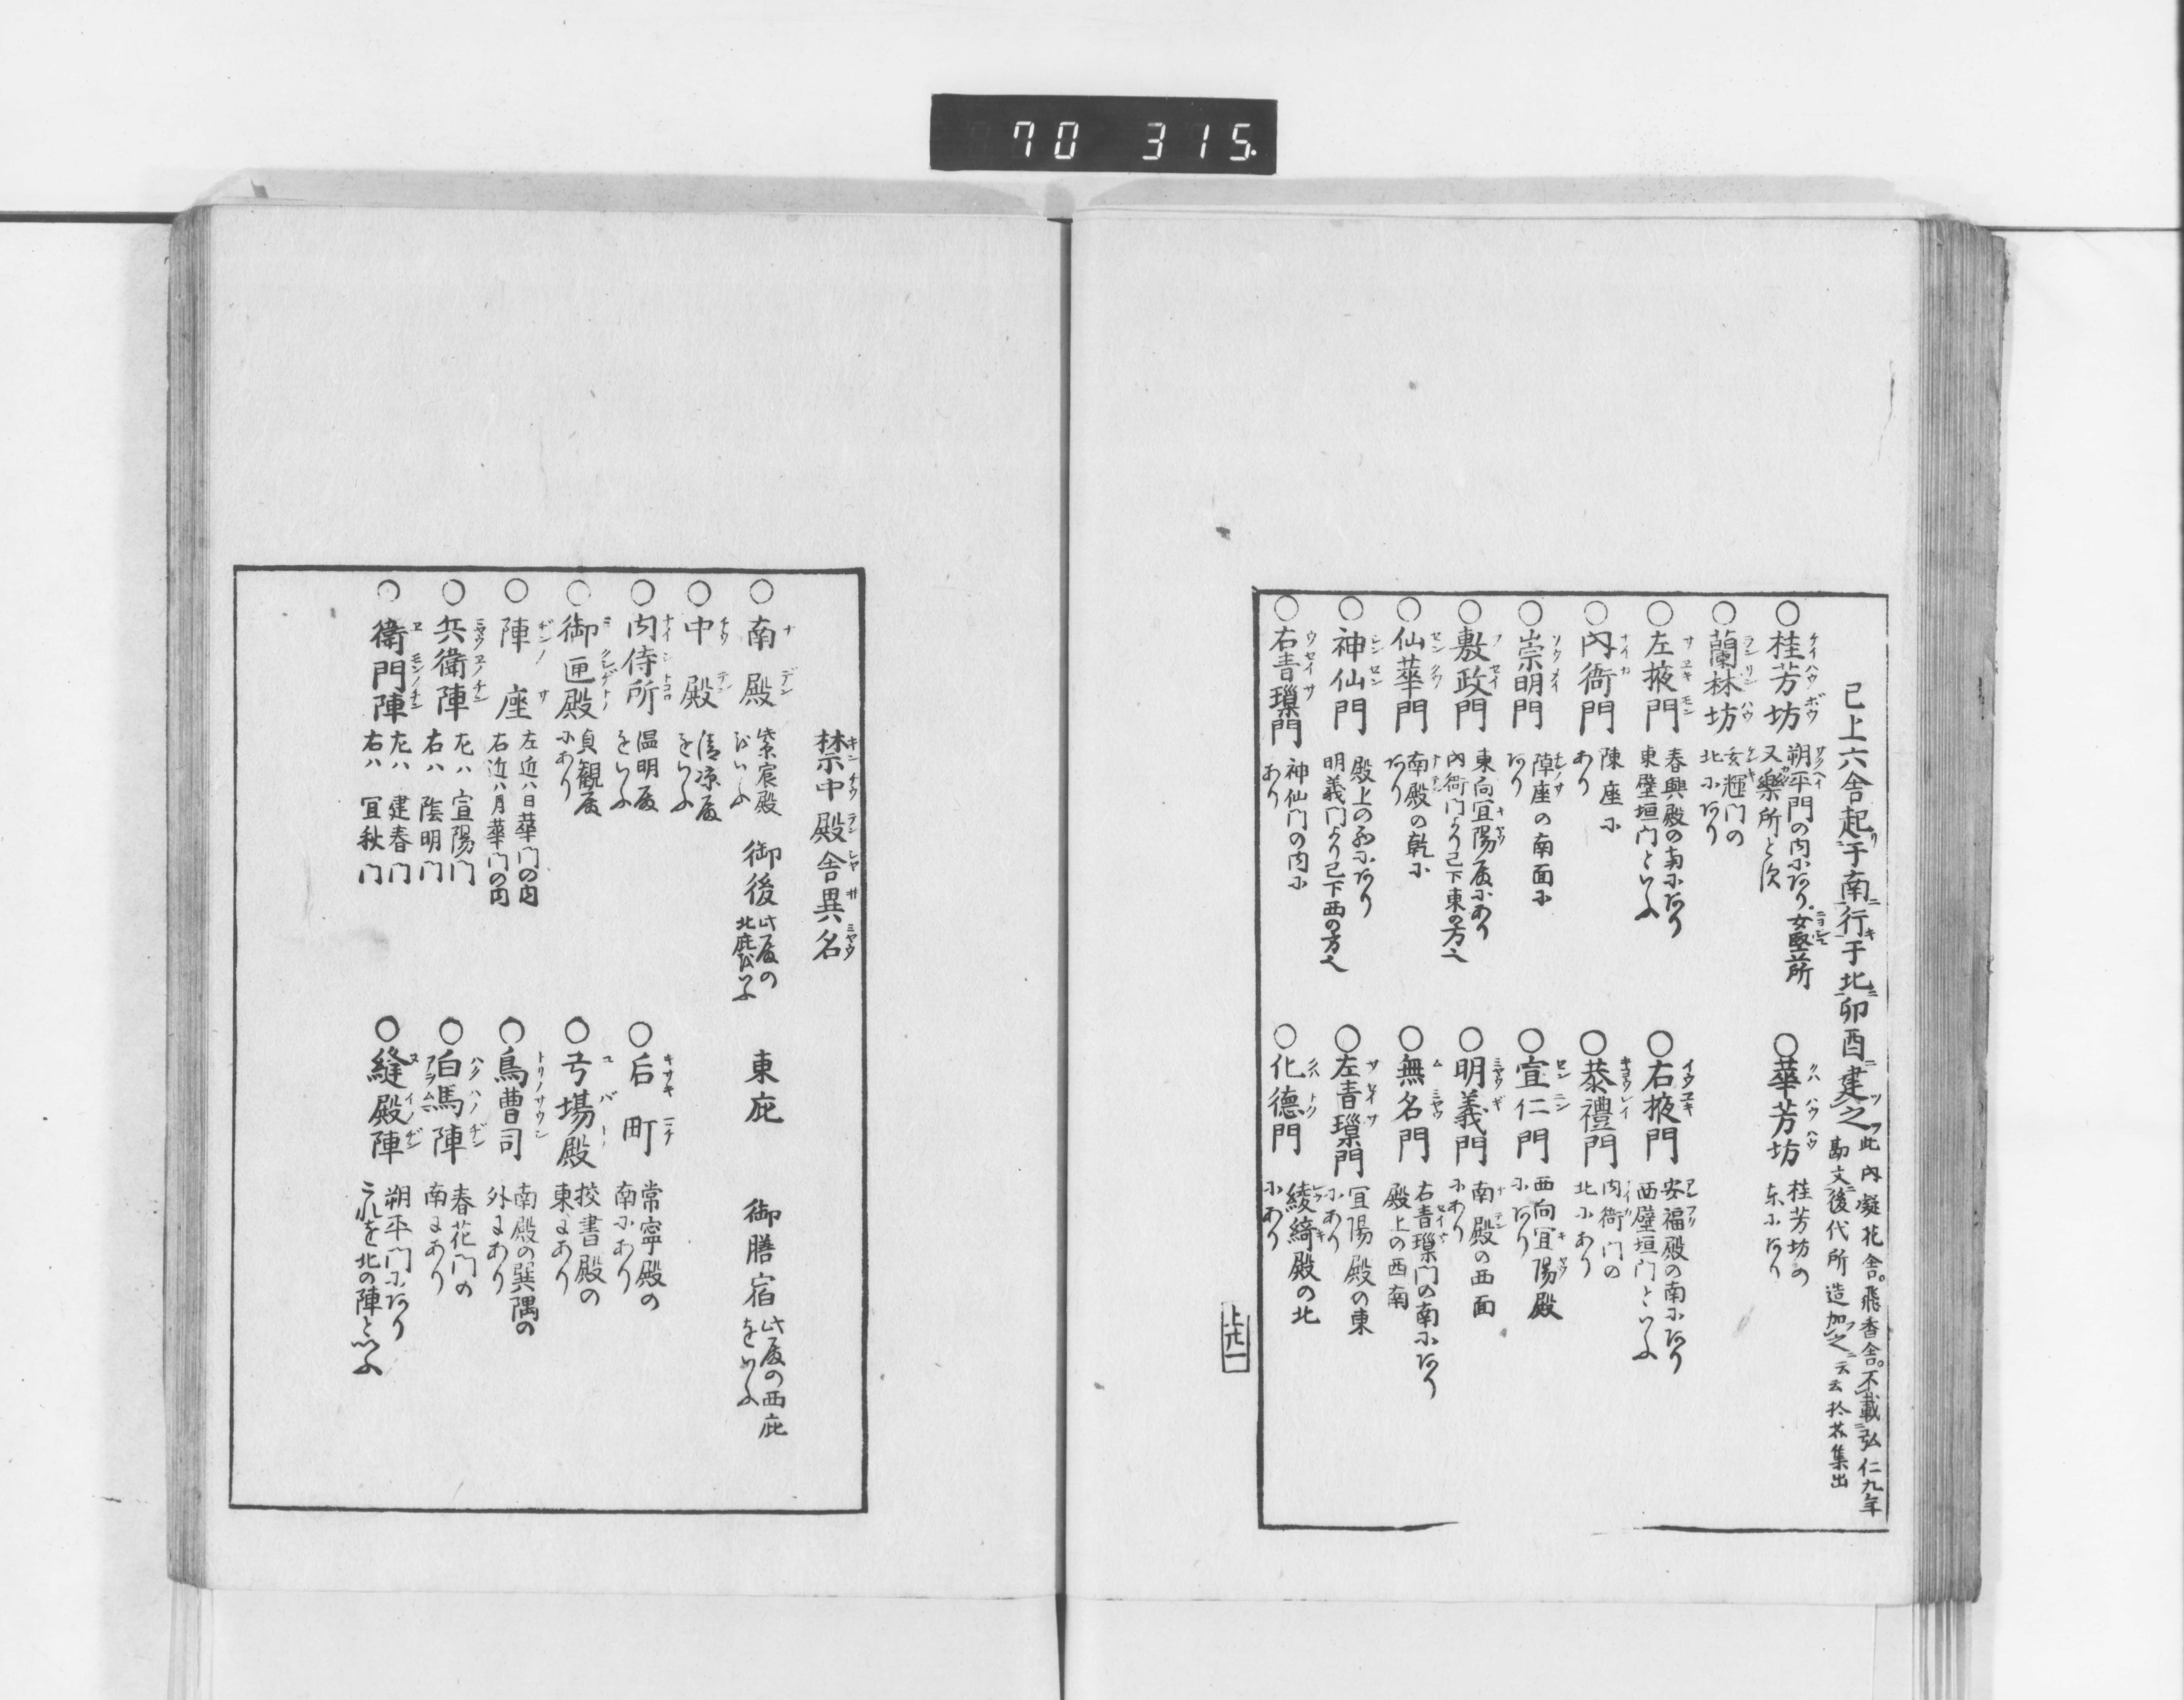 70 315.
已上六舎起于南行于北卯酉建之
此内凝花舎。飛香舎。不載弘仁九年
勘文後代所造加之云云拾芥集出
○桂芳坊 朔平門の内にあり女聖所
又樂所と次
○華芳坊 桂芳坊の
东にあり
○蘭林坊 玄輝門の
北にあり
○左掖門 春興殿の南にあり
東壁垣門といふ
○右掖門 安福殿の南にあり
西壁垣門といふ
○内衙門 陳座に
あり
○恭禮門 内衙門の
北にあり
○崇明門 陣座の南面に
あり
○宣仁門 西向宜陽殿
にあり
○敷政門 東向宜陽殿にあり
内衙門より已下東の方也
○明義門 南殿の西面
にあり
○仙華門 南殿の乾に
あり
○無名門 右青璅門の南にあり
殿上の西南
○神仙門 殿上の前にあり
明義門より已下西の方也
○左青璅門 宜陽殿の東
にあり
○右青璅門 神仙門の内に
あり
○化德門 綾綺殿の北
にあり
上廿一
禁中殿舎異名
○南殿 紫宸殿
をいふ
御後 此殿の
北庇をいふ
東庇
御膳宿 此殿の西庇
をいふ
○中殿 清凉殿
をいふ
○内侍所 温明殿
をいふ
○后町 常寧殿の
南にあり
○御匣殿 貞観殿
にあり
○弓場殿 挍書殿の
東にあり
○陣座 左近ハ日華門の内
右近ハ月華門の内
○鳥曹司 南殿の巽隅の
外にあり
○兵衛陣 左ハ宣陽門
右ハ陰明門
○白馬陣 春花門の
南にあり
○衛門陣 左ハ建春門
右ハ宜秋門
○縫殿陣 朔平門にあり
これを北の陣といふ